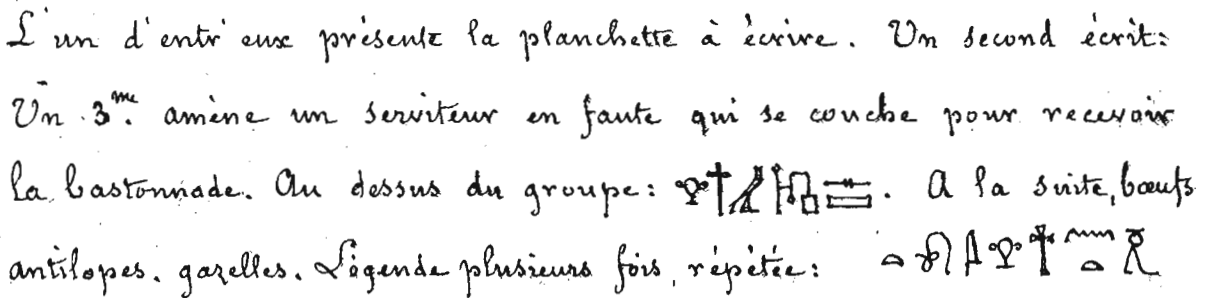 L'un d'entr'eux présente la planchette à écrire. Un second écrit:
Un 3me. amène un serviteur en faute qui se couche pour recevoir
la bastonnade. Au dessus du groupe: . A la suite, bœufs
antilopes. gazelles. Légende plusieurs fois répétée: